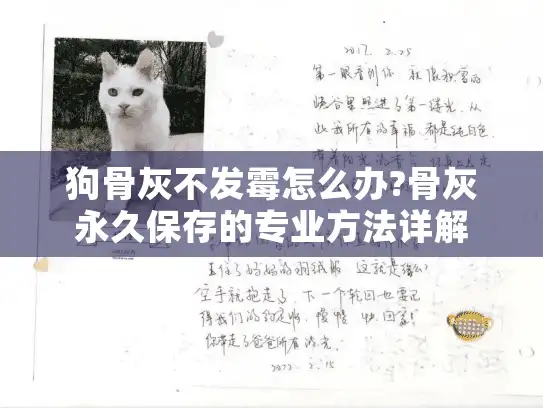 2017. 2.25
第一眼看到你 就像积雪的
峡谷里照进了第一缕光,从
此我所有的幸福,都是纯白色
狗骨灰不发霉怎么办?骨灰
永久保存的专业方法详解
住了妈妈的羽绒服 这就是缘
空手就抱走了,下一个轮回也要记
得我们的约定啊,慢慢 快回家!
你带走了爸爸所有的光.
2022. 2.15